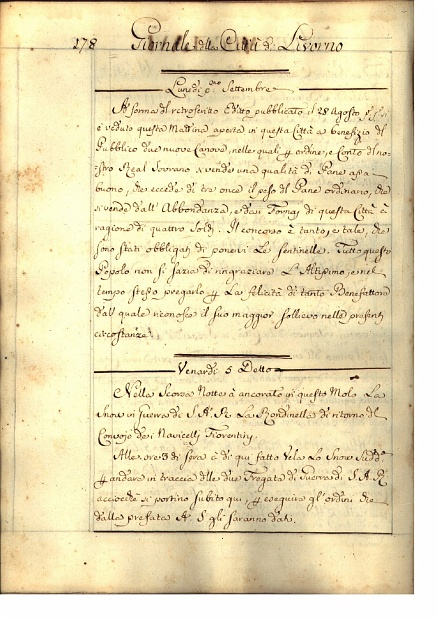 278 Giornale della Città di Livorno
Lunedì p.mo Settembre
A forma del retroscritto Editto pubblicato il 28 Agosto
è veduto questa Mattina aperta in questa Città a benefizio del
Pubblico due nuove Canove, nelle quali p ordine, e Conto del no-
stro Real Sovrano si vende una qualità di Pane assai
buono, che eccede di tre once il peso del Pane ordinario, che
si vende dall' Abbondanza, e dai Fornaj di questa Città a
ragione di quattro Soldi. Il concorso è tanto, e tale, che
sono stati obbligati di ponervi le Sentinelle. Tutto questo
Popolo non si sazia di ringraziare L'Altissimo, e nel
tempo stesso pregarlo p La felicità di tanto Benefattore
dal quale riconosce il suo maggior sollievo nelle presenti
circostanze.
Venerdì 5 Detto
Nella Scorsa Notte à ancorato in questo Molo La
Snow in guerra di S. A. R. La Rondinella di ritorno del
Convojo dei Navicelli Fiorentini.
Alle ore 3 di sera è di qui fatto Vela La Snow Sud.a
p andare in traccia delle due Fregate di Guerra di S. A. R.
acciocchè si portino subito qui, p eseguire gl'ordini che
dalla prefata A. S. gli saranno dati.